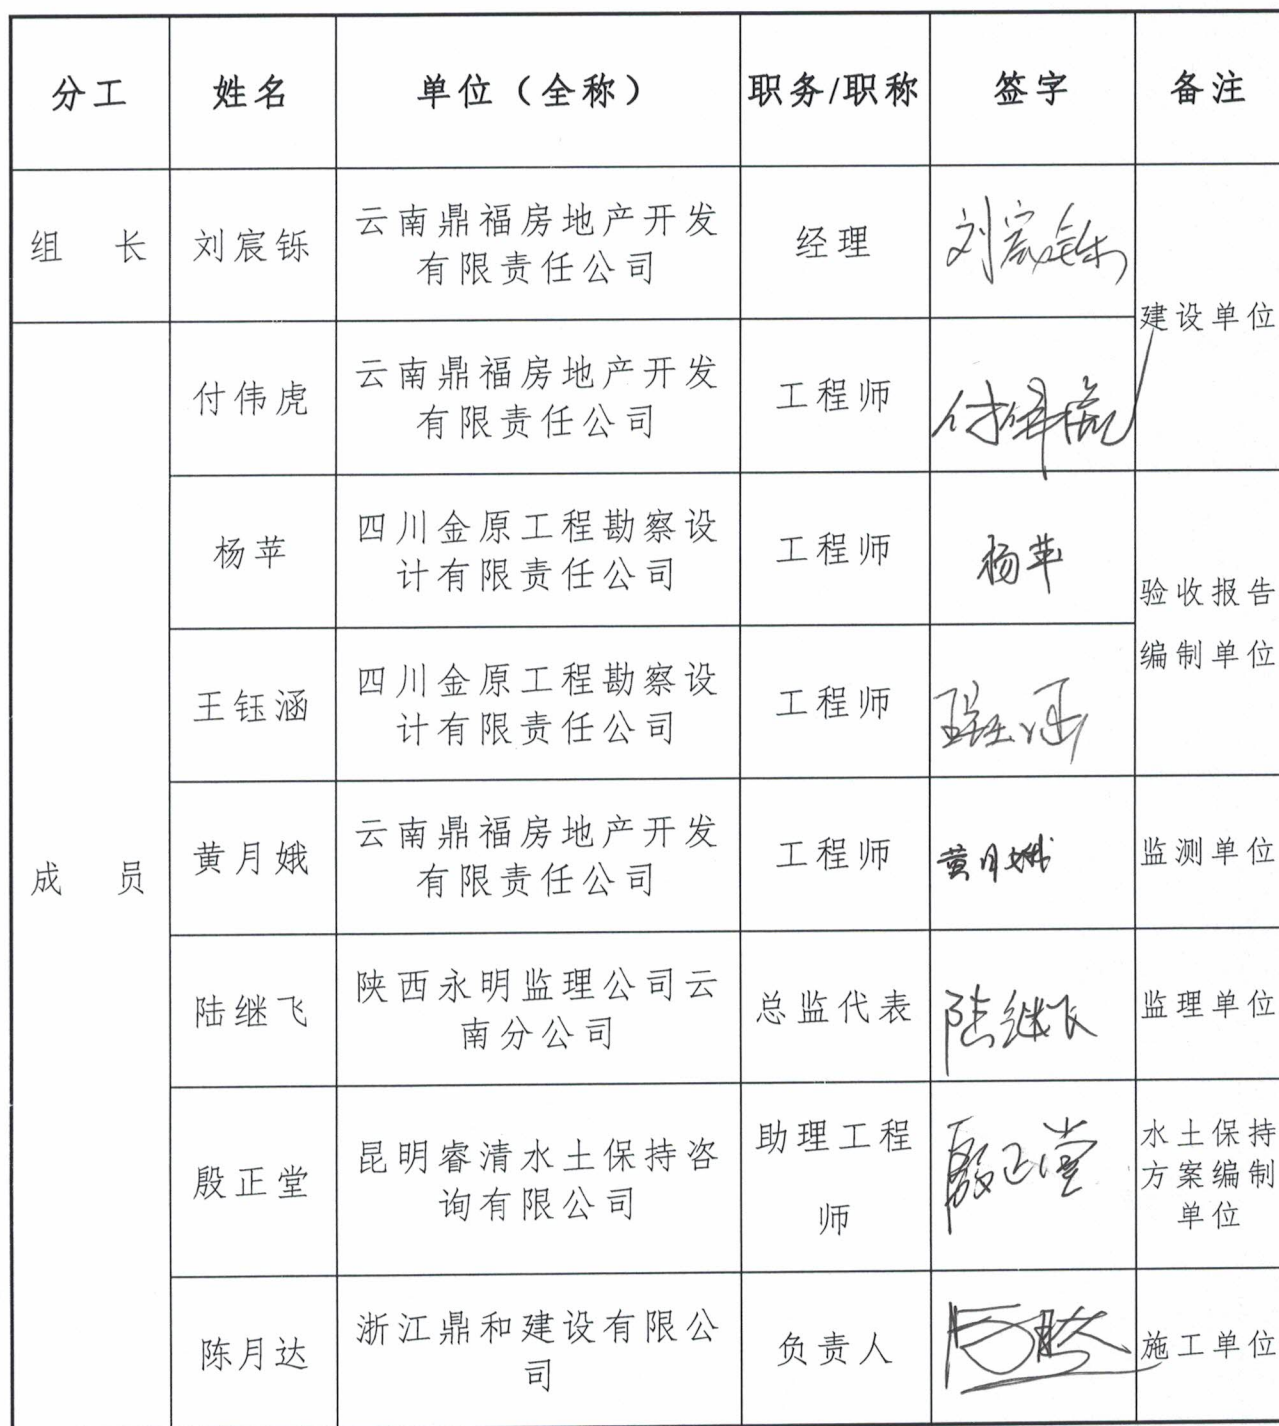 分工 姓名 单位（全称） 职务/职称 签字 备注
组 长 刘宸铄 云南鼎福房地产开发
有限责任公司 经理 刘宸铄
建设单位
付伟虎 云南鼎福房地产开发
有限责任公司 工程师 付伟虎
杨苹 四川金原工程勘察设
计有限责任公司 工程师 杨苹
验收报告
编制单位
王钰涵 四川金原工程勘察设
计有限责任公司 工程师 王钰涵
成 员
黄月娥 云南鼎福房地产开发
有限责任公司 工程师 黄月娥 监测单位
陆继飞 陕西永明监理公司云
南分公司 总监代表 陆继飞 监理单位
殷正堂 昆明睿清水土保持咨
询有限公司 助理工程
师 殷正堂 水土保持
方案编制
单位
陈月达 浙江鼎和建设有限公
司 负责人 施工单位